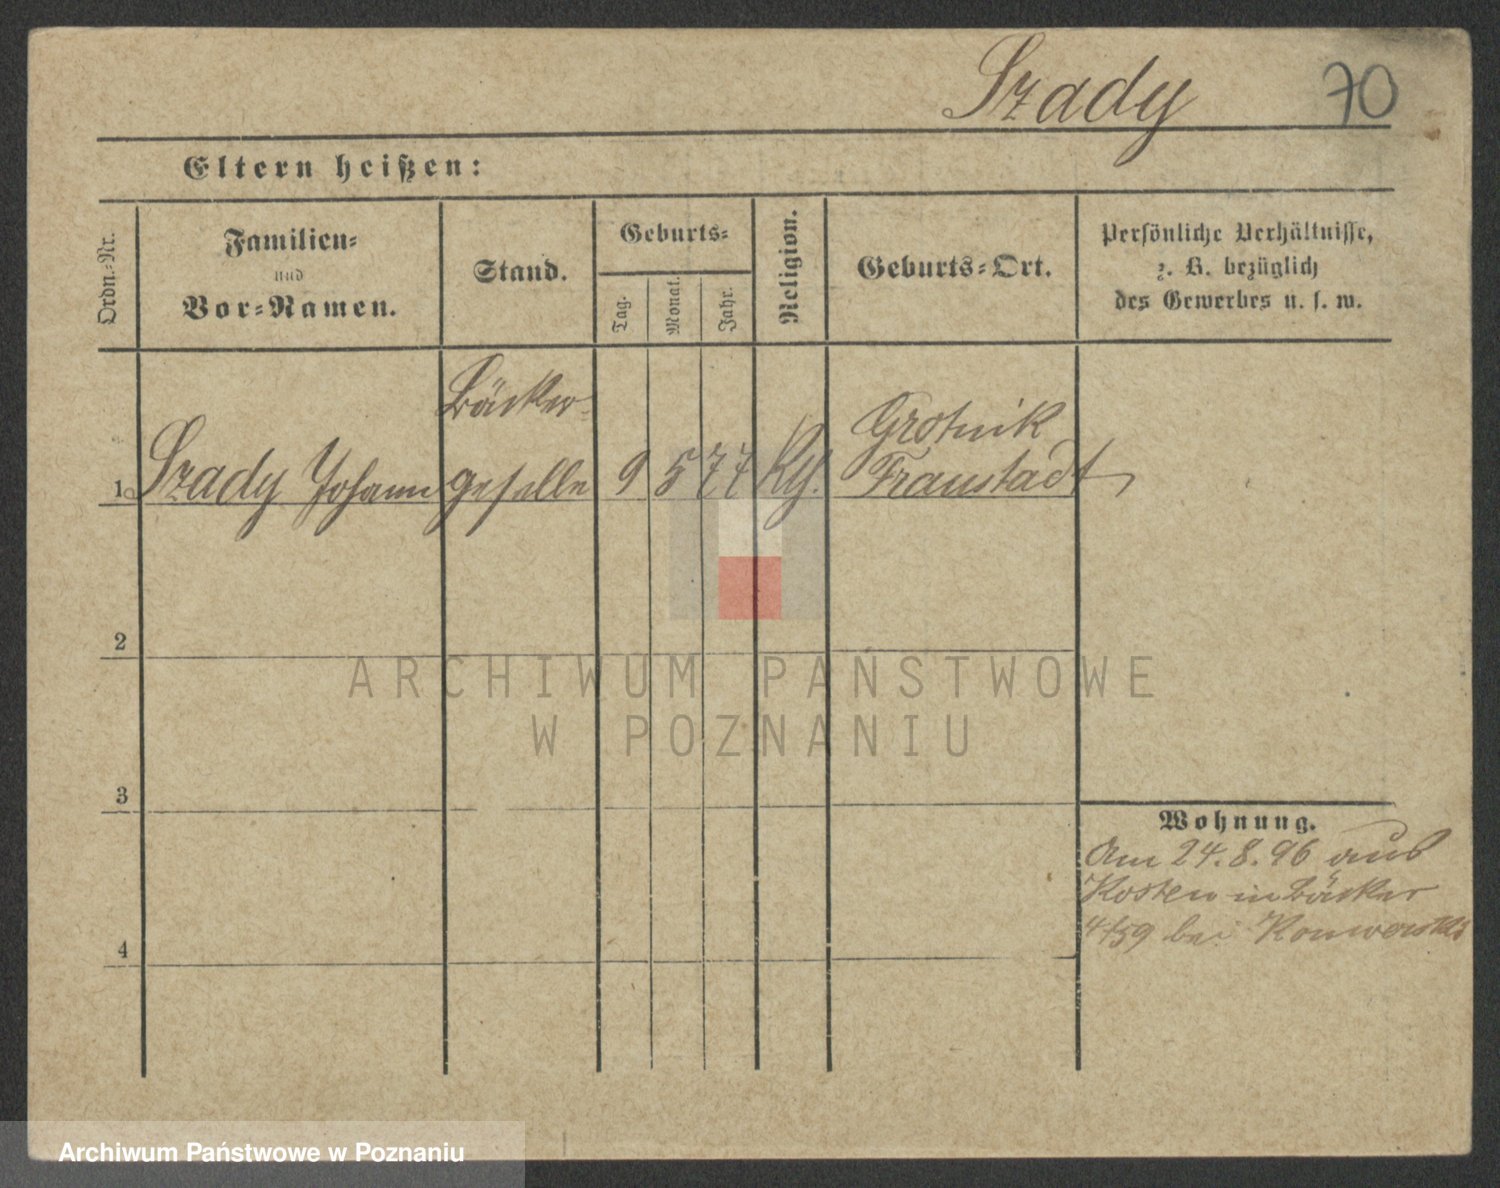 Szady 70
Eltern heißen:
Ordn.-Nr.
Familien-
und
Vor-Namen.
Stand.
Geburts-
Tag.
Monat.
Jahr.
Religion.
Geburts-Ort.
Persönliche Verhältnisse,
z. B. bezüglich
des Gewerbes u. s. w.
Bäcker-
Grotnik
1 Szady Johann geselle 9 5 77 Fraustadt
2
3
4
Wohnung.
Am 24.8.96 aus
Kosten in Bäcker
4/59 bei
ARCHIWUM PAŃSTWOWE
W POZNANIU
Archiwum Państwowe w Poznaniu